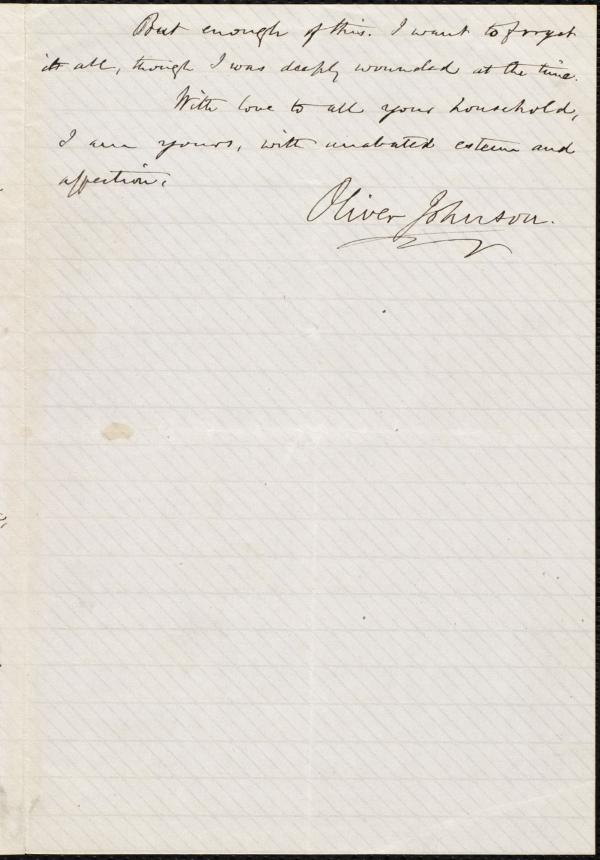 But enough of this. I want to forget
it all, though I was deeply wounded at the time.
With love to all your household,
I am yours, with unabated esteem and
affection,
Oliver Johnson.